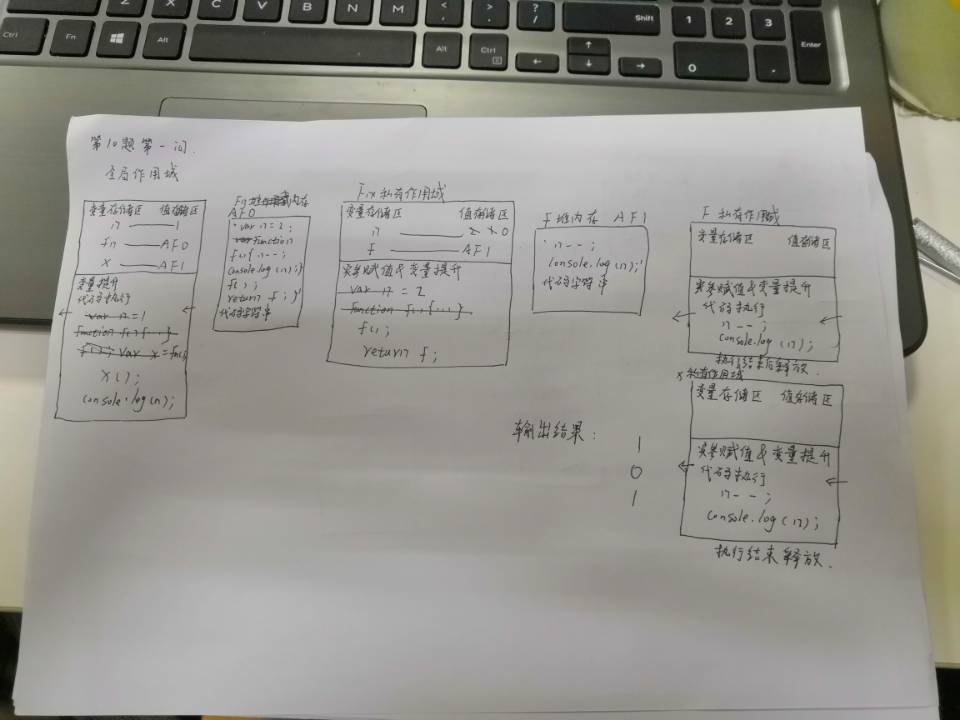 Z X C V B N M < > ? / Shift 1 2 3 Enter
Ctrl Fn Alt Alt Ctrl 0 .
第10题第一问.
全局作用域
变量存储区 值存储区
n 1
fn AF0
x AF1
变量提升
代码执行
var n=1
function fn(){...}
x();
console.log(n);
AF0
'var n=2;
function
f(){n--;
console.log(n);}
f();
return f;'
代码字符串
Fn私有作用域
变量存储区 值存储区
n 2 1 0
f AF1
实参赋值&变量提升
var n=2
function f(){...}
f();
return f;
F堆内存 AF1
'n--;
console.log(n);'
代码字符串
F私有作用域
变量存储区 值存储区
实参赋值&变量提升
代码执行
n--;
console.log(n);
执行结束后释放.
x私有作用域
变量存储区 值存储区
实参赋值&变量提升
代码执行
n--;
console.log(n);
执行结束释放.
输出结果:
1
0
1